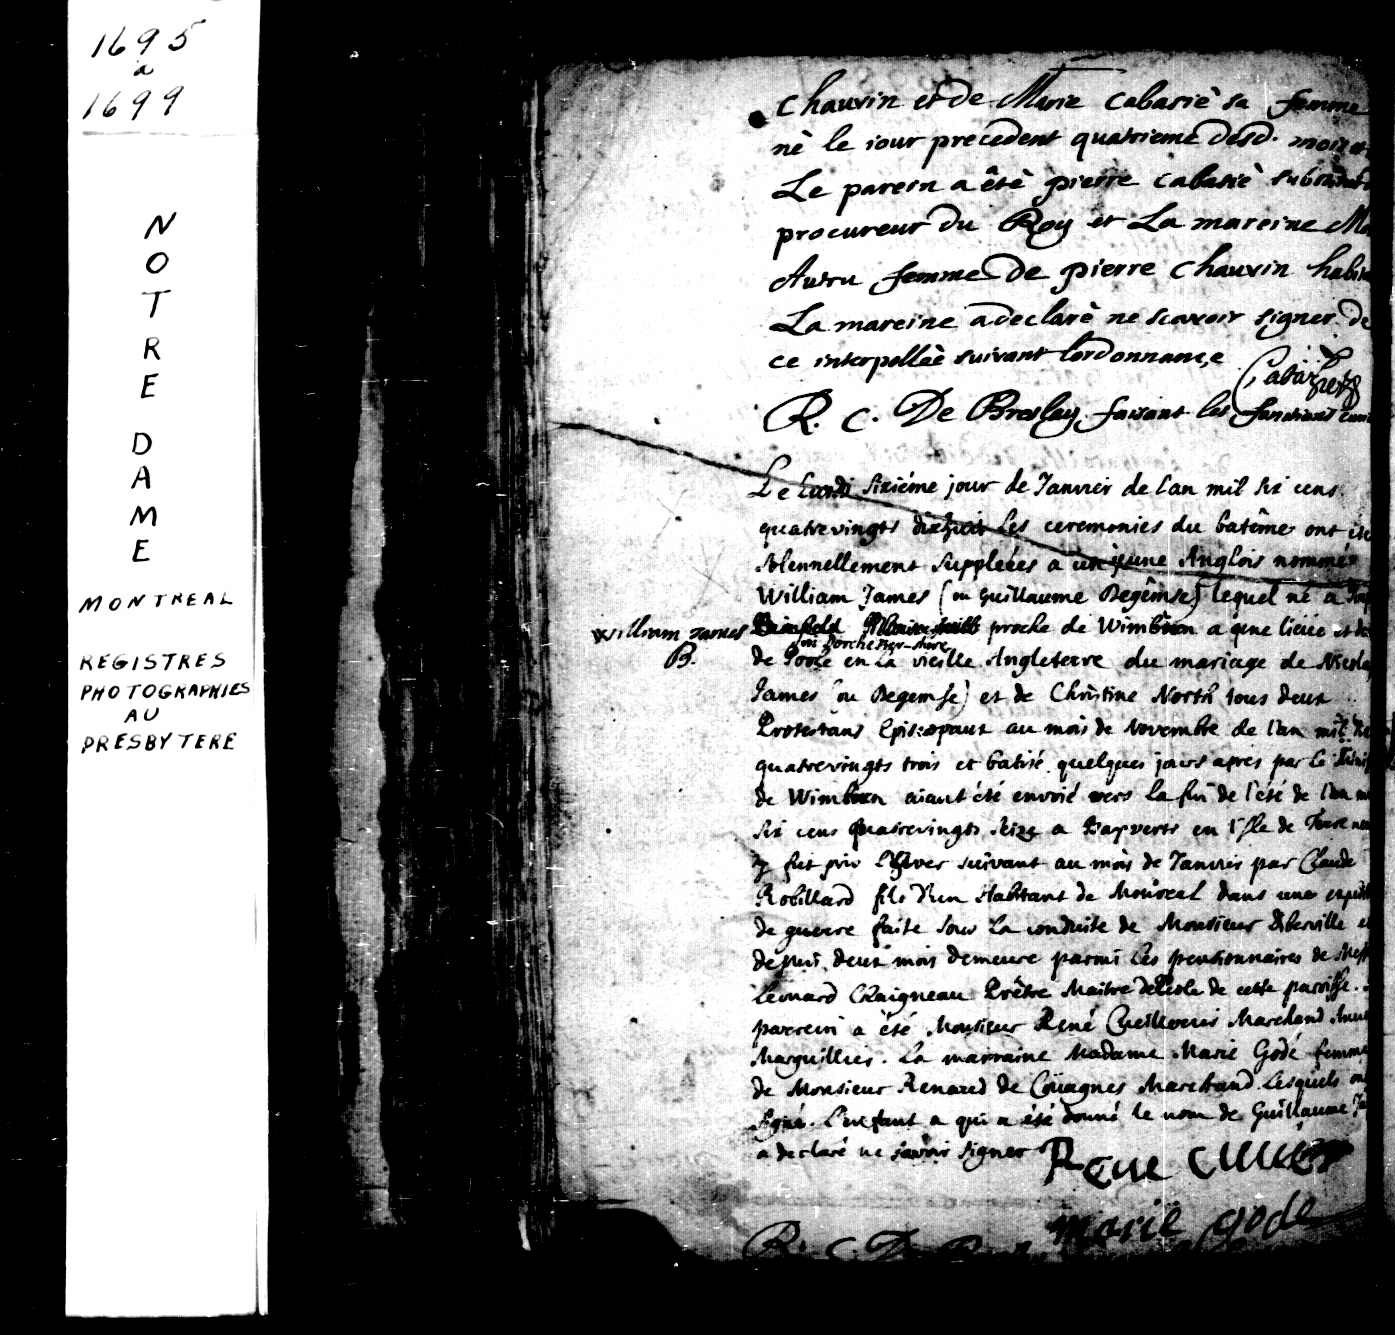 1695
a
1699
NOTRE
DAME
MONTREAL
REGISTRES
PHOTOGRAPHIES
AU
PRESBYTERE
Chauvin et de Marie Cabasiè sa femme
nè le iour precedent quatrieme desd. mois et
Le parein a êtè pierre cabasiè substitut
procureur du Roy et La mareine
Autru femme de pierre chauvin habi
La mareine a declarè ne scavoir signer de
ce interpellèè suivant lordonnance
Cabazie
R. C. De Breslay faisant les fonctions curi
William James
B.
Le Lundi sixiéme jour de Janvier de l'an mil six cens
quatrevingts dixhuit les ceremonies du batême ont été
solennellement suppleées a un jeune Anglois nommé
William James (ou Guillaume Degêmse) lequel né a
proche de Wimborn a une lieüe et de
en Dorchester-shire
de Poole en la vieille Angleterre du mariage de Nicola
James (ou Degemse) et de Christine North tous deux
Protestans Episcopaux au mois de Novembre de l'an mil six
quatrevingts trois et batisé quelques jours apres par le
de Wimborn aiant été envoié vers la fin de l'été de l'an m
six cens quatrevingts seize a Bayverts en l'Isle de Terre neu
y fut pris l'hyver suivant au mois de Janvier par Claude
Robillard fils d'un Habitant de Monreal dans une expedi
de guerre faite sous la conduite de Monsieur Diberville et
depuis deux mois demeure parmi les pensionnaires de Mess
Leonard Chaigneau Prêtre Maitre d'Ecole de cette paroisse.
parrein a été Monsieur René Cuillerier Marchand
Marguillier. La marraine Madame Marie Godé femme
de Monsieur Renard de Coüagnes Marchand Lesquels on
signé. L'enfant a qui a été donné le nom de Guillaume Ja
a declaré ne savoir signer
Rene Cuillerier
marie gode
R. C. De